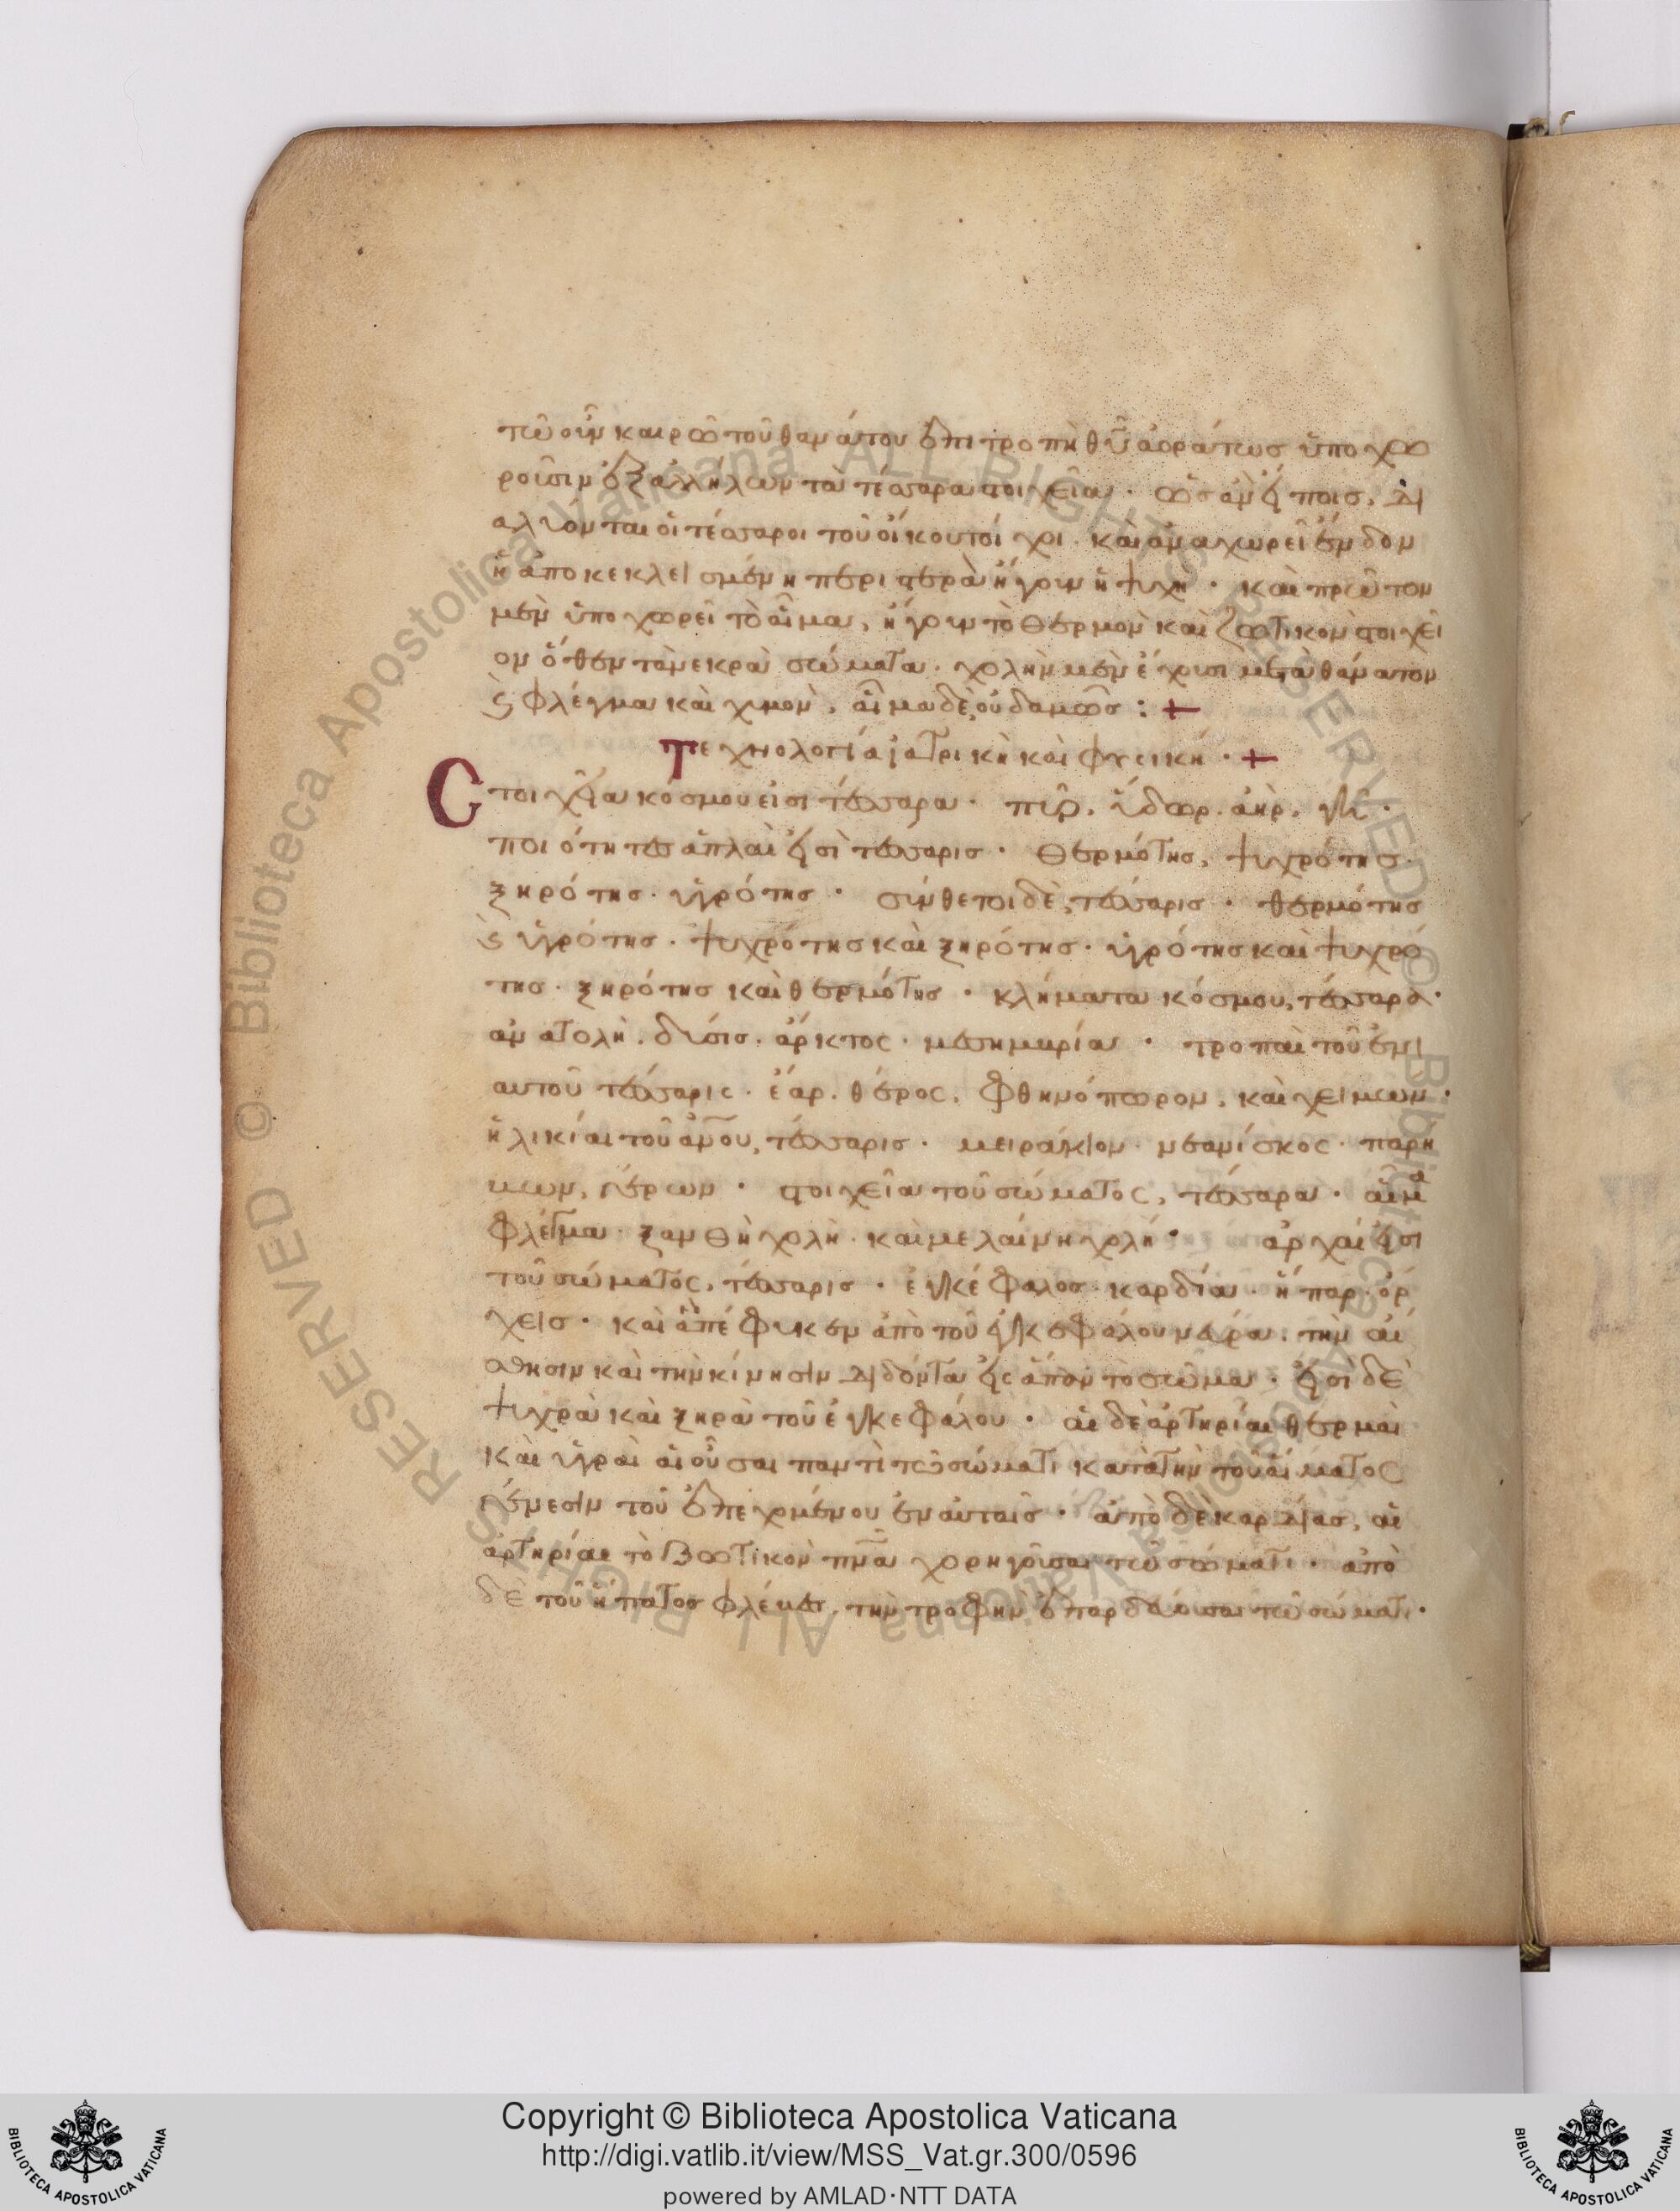 τῶ οὖν καιρῶ τοῦ θανάτου ἐπιτροπῆ θῦ ἀοράτως ὑποχω
ροῦσιν ἐξ ἀλλήλων τὰ τέσσαρα στοιχεῖα. ὡς ἂν εἴποις,
αλύονται οἱ τέσσαροι τοῦ οἴκου τοίχοι. καὶ ἀναχωρεῖ ἔνδον
ἡ ἀποκεκλεισμένη περιστερὰ ἤγουν ἡ ψυχή. καὶ πρῶτον
μὲν ὑποχωρεῖ τὸ αἷμα, ἤγουν τὸ θερμὸν καὶ ζωτικὸν στοιχεῖ
ον ὅθεν τὰ νεκρὰ σώματα. χολὴν μὲν ἔχουσι μετὰ θάνατον
ϛ φλέγμα καὶ χυμὸν, αἷμα δὲ, οὐδαμῶς : +
Τεχνολογία ϊατρικὴ καὶ φυσική · +
Στοιχεῖα κόσμου εἰσι τέσσαρα · πῦρ, ὕδωρ. ἀὴρ, γῆ ·
ποιότητες ἁπλαὶ εἰσὶ τέσσαρις · θερμότης, ψυχρότης.
ξηρότης. ὑγρότης · σύνθετοι δὲ, τέσσαρις · θερμότης
ϛ ὑγρότης. ψυχρότης καὶ ξηρότης. ὑγρότης καὶ ψυχρό
της. ξηρότης καὶ θερμότης · κλήματα κόσμου, τέσσαρα ·
ανατολὴ. δύσις. ἄρκτος. μεσημβρία · τροπαὶ τοῦ ἐνι
αυτοῦ τέσσαρις. ἔαρ. θέρος. φθηνόπωρον. καὶ χειμων ·
ἡλικίαι τοῦ ἀνου, τέσσαρις · μειράκιον. νεανίσκος. παρη
μων, γέρων · στοιχεῖα τοῦ σώματος, τέσσαρα · αἷμα
φλέγμα. ξανθὴ χολὴ. καὶ μελαίνη χολή · ἀρχαί εἰσι
τοῦ σώματος, τέσσαρις · ἐγκέφαλος. καρδία. ἧπαρ. ὄρ
χεις · καὶ ἃ πέφυκεν ἀπὸ τοῦ ἐγκεφάλου νεῦρα. τὴν αἴ
σθησιν καὶ τὴν κίνησιν διδόντα εἰς ἅπαν τὸ σῶμα · εἰσὶ δὲ
ψυχρὰ καὶ ξηρὰ τοῦ ἐγκεφάλου · αἱ δὲ ἀρτηρίαι θερμαὶ
καὶ ὑγραὶ αἱ οὖσαι παντὶ τῶ σώματι κατὰ τὴν τοῦ αἵματος
γένεσιν τοῦ ἐπεχομένου ἐν αὐταῖς · ἀπὸ δὲ καρδίας, αἱ
ἀρτηρίαι τὸ βωτικὸν πνᾶ χορηγοῦσαι τῶ σώματι · ἀπὸ
δὲ τοῦ ἥπατος φλέβες, τὴν τροφὴν τῶ σώματι ·
Copyright © Biblioteca Apostolica Vaticana
http://digi.vatlib.it/view/MSS_Vat.gr.300/0596
powered by AMLAD·NTT DATA
BIBLIOTECA APOSTOLICA VATICANA
BIBLIOTECA APOSTOLICA VATICANA